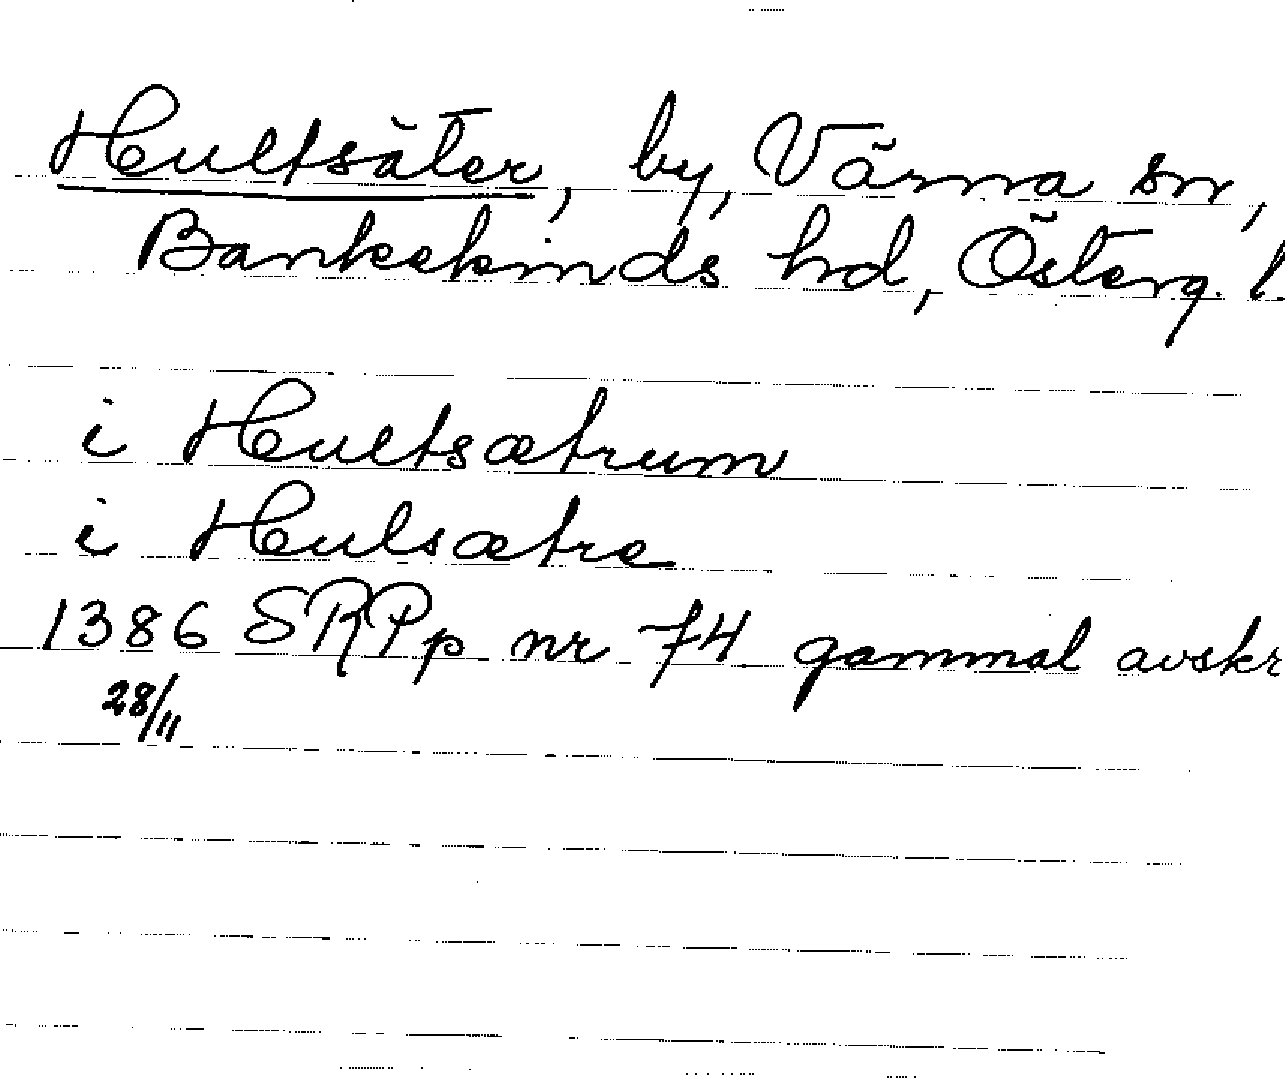 Hultsäter, by, Värna sn,
Bankekinds hd, Österg. l.
i Hultsætrum
i Hulsætre
1386 SRPp nr 74 gammal avskr
28/11